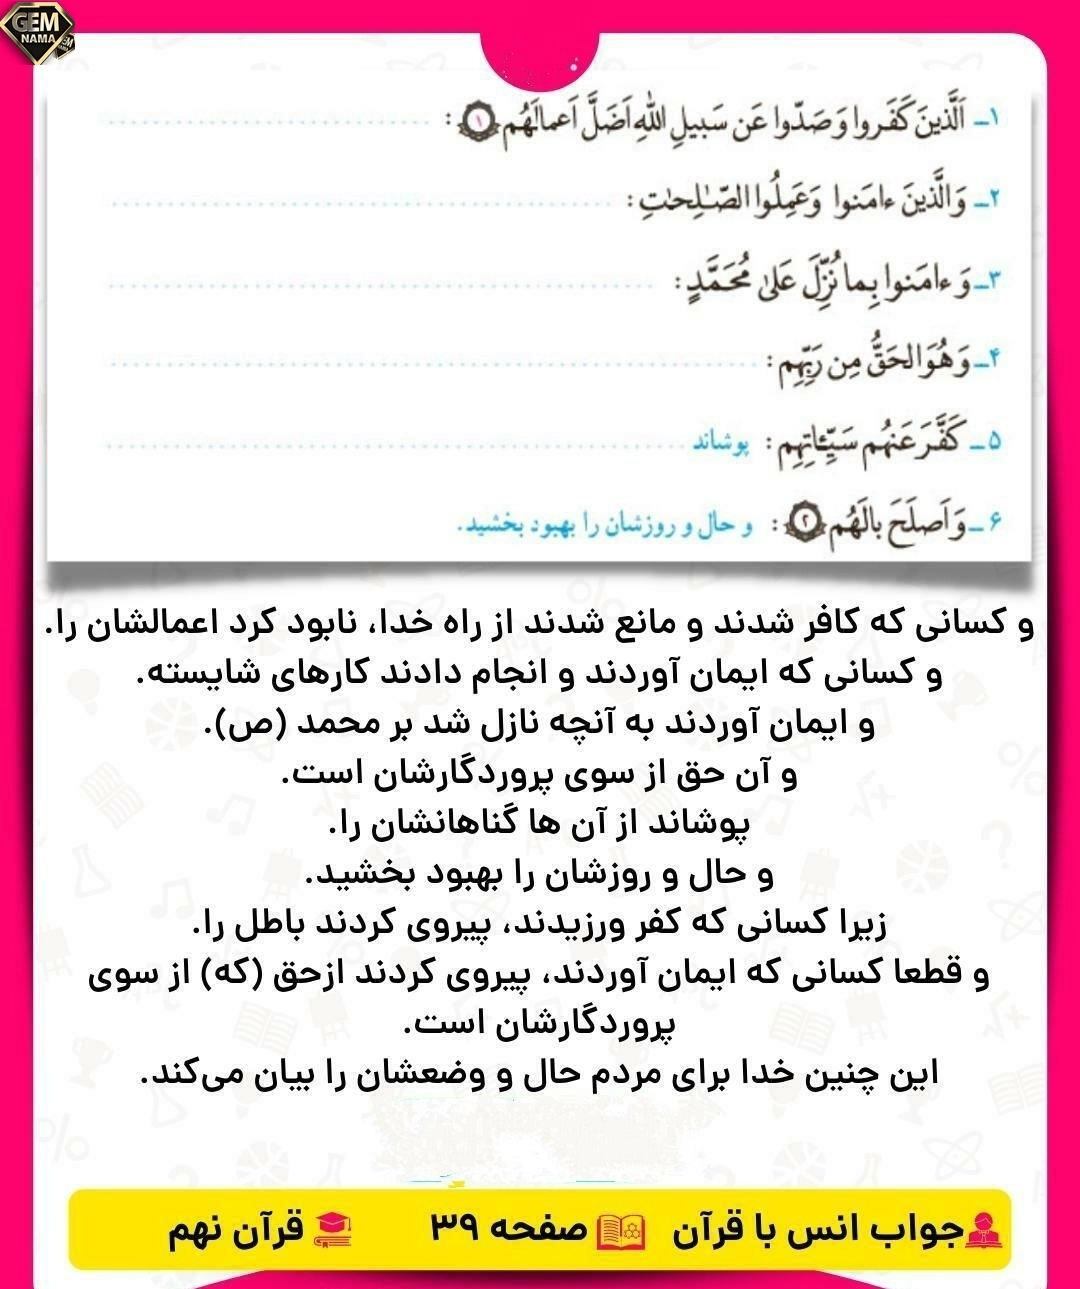 GEM
NAMA
۱ـ اَلَّذینَ کَفَروا وَ صَدّوا عَن سَبیلِ اللّٰهِ اَضَلَّ اَعمالَهُم ۱ :
۲ـ وَ الَّذینَ ءامَنوا وَ عَمِلُوا الصّٰلِحٰتِ :
۳ـ وَ ءامَنوا بِما نُزِّلَ عَلیٰ مُحَمَّدٍ :
۴ـ وَ هُوَ الحَقُّ مِن رَبِّهِم :
۵ـ کَفَّرَ عَنهُم سَیِّـٔاتِهِم : پوشاند
۶ـ وَ اَصلَحَ بالَهُم ۲ : و حال و روزشان را بهبود بخشید.
و کسانی که کافر شدند و مانع شدند از راه خدا، نابود کرد اعمالشان را.
و کسانی که ایمان آوردند و انجام دادند کارهای شایسته.
و ایمان آوردند به آنچه نازل شد بر محمد (ص).
و آن حق از سوی پروردگارشان است.
پوشاند از آن ها گناهانشان را.
و حال و روزشان را بهبود بخشید.
زیرا کسانی که کفر ورزیدند، پیروی کردند باطل را.
و قطعا کسانی که ایمان آوردند، پیروی کردند ازحق (که) از سوی
پروردگارشان است.
این چنین خدا برای مردم حال و وضعشان را بیان می‌کند.
جواب انس با قرآن صفحه ۳۹ قرآن نهم